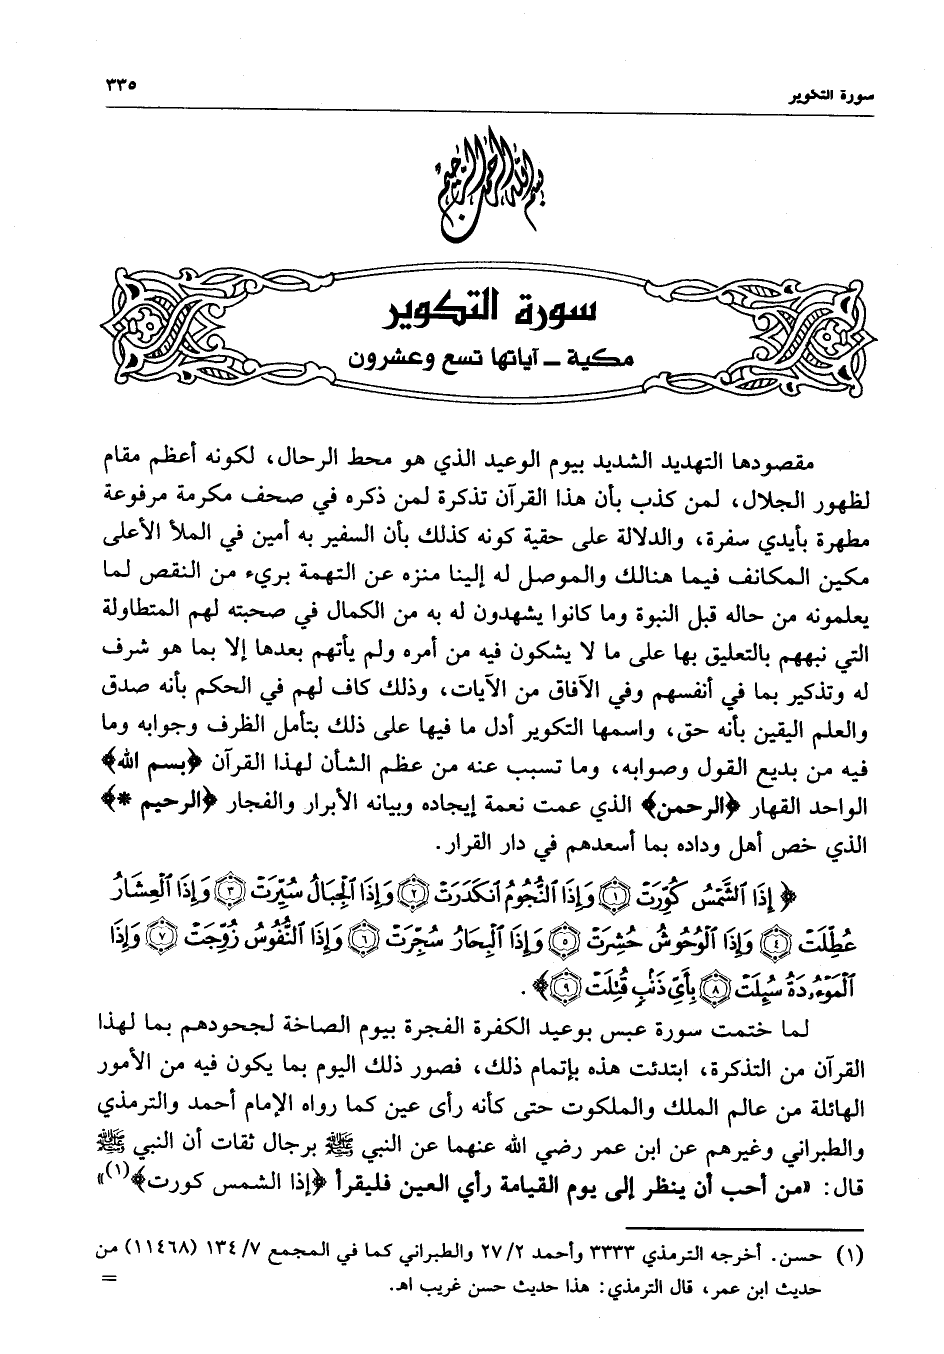 سورة التكوير
٣٣٥
بسم الله الرحمن الرحيم
سورة التكوير
مكية ـ آياتها تسع وعشرون
مقصودها التهديد الشديد بيوم الوعيد الذي هو محط الرحال، لكونه أعظم مقام
لظهور الجلال، لمن كذب بأن هذا القرآن تذكرة لمن ذكره في صحف مكرمة مرفوعة
مطهرة بأيدي سفرة، والدلالة على حقية كونه كذلك بأن السفير به أمين في الملأ الأعلى
مكين المكانف فيما هنالك والموصل له إلينا منزه عن التهمة بريء من النقص لما
يعلمونه من حاله قبل النبوة وما كانوا يشهدون له به من الكمال في صحبته لهم المتطاولة
التي نبههم بالتعليق بها على ما لا يشكون فيه من أمره ولم يأتهم بعدها إلا بما هو شرف
له وتذكير بما في أنفسهم وفي الآفاق من الآيات، وذلك كاف لهم في الحكم بأنه صدق
والعلم اليقين بأنه حق، واسمها التكوير أدل ما فيها على ذلك بتأمل الظرف وجوابه وما
فيه من بديع القول وصوابه، وما تسبب عنه من عظم الشأن لهذا القرآن ﴿بسم الله﴾
الواحد القهار ﴿الرحمن﴾ الذي عمت نعمة إيجاده وبيانه الأبرار والفجار ﴿الرحيم *﴾
الذي خص أهل وداده بما أسعدهم في دار القرار.
﴿ إِذَا ٱلشَّمْسُ كُوِّرَتْ ١ وَإِذَا ٱلنُّجُومُ ٱنكَدَرَتْ ٢ وَإِذَا ٱلْجِبَالُ سُيِّرَتْ ٣ وَإِذَا ٱلْعِشَارُ
عُطِّلَتْ ٤ وَإِذَا ٱلْوُحُوشُ حُشِرَتْ ٥ وَإِذَا ٱلْبِحَارُ سُجِّرَتْ ٦ وَإِذَا ٱلنُّفُوسُ زُوِّجَتْ ٧ وَإِذَا
ٱلْمَوْءُۥدَةُ سُئِلَتْ ٨ بِأَىِّ ذَنۢبٍ قُتِلَتْ ٩﴾ .
لما ختمت سورة عبس بوعيد الكفرة الفجرة بيوم الصاخة لجحودهم بما لهذا
القرآن من التذكرة، ابتدئت هذه بإتمام ذلك، فصور ذلك اليوم بما يكون فيه من الأمور
الهائلة من عالم الملك والملكوت حتى كأنه رأى عين كما رواه الإمام أحمد والترمذي
والطبراني وغيرهم عن ابن عمر رضي الله عنهما عن النبي ﷺ برجال ثقات أن النبي ﷺ
قال: «من أحب أن ينظر إلى يوم القيامة رأي العين فليقرأ ﴿إذا الشمس كورت﴾(١)»
(١) حسن. أخرجه الترمذي ٣٣٣٣ وأحمد ٢/ ٢٧ والطبراني كما في المجمع ٧/ ١٣٤ (١١٤٦٨) من
حديث ابن عمر، قال الترمذي: هذا حديث حسن غريب اهـ.
=